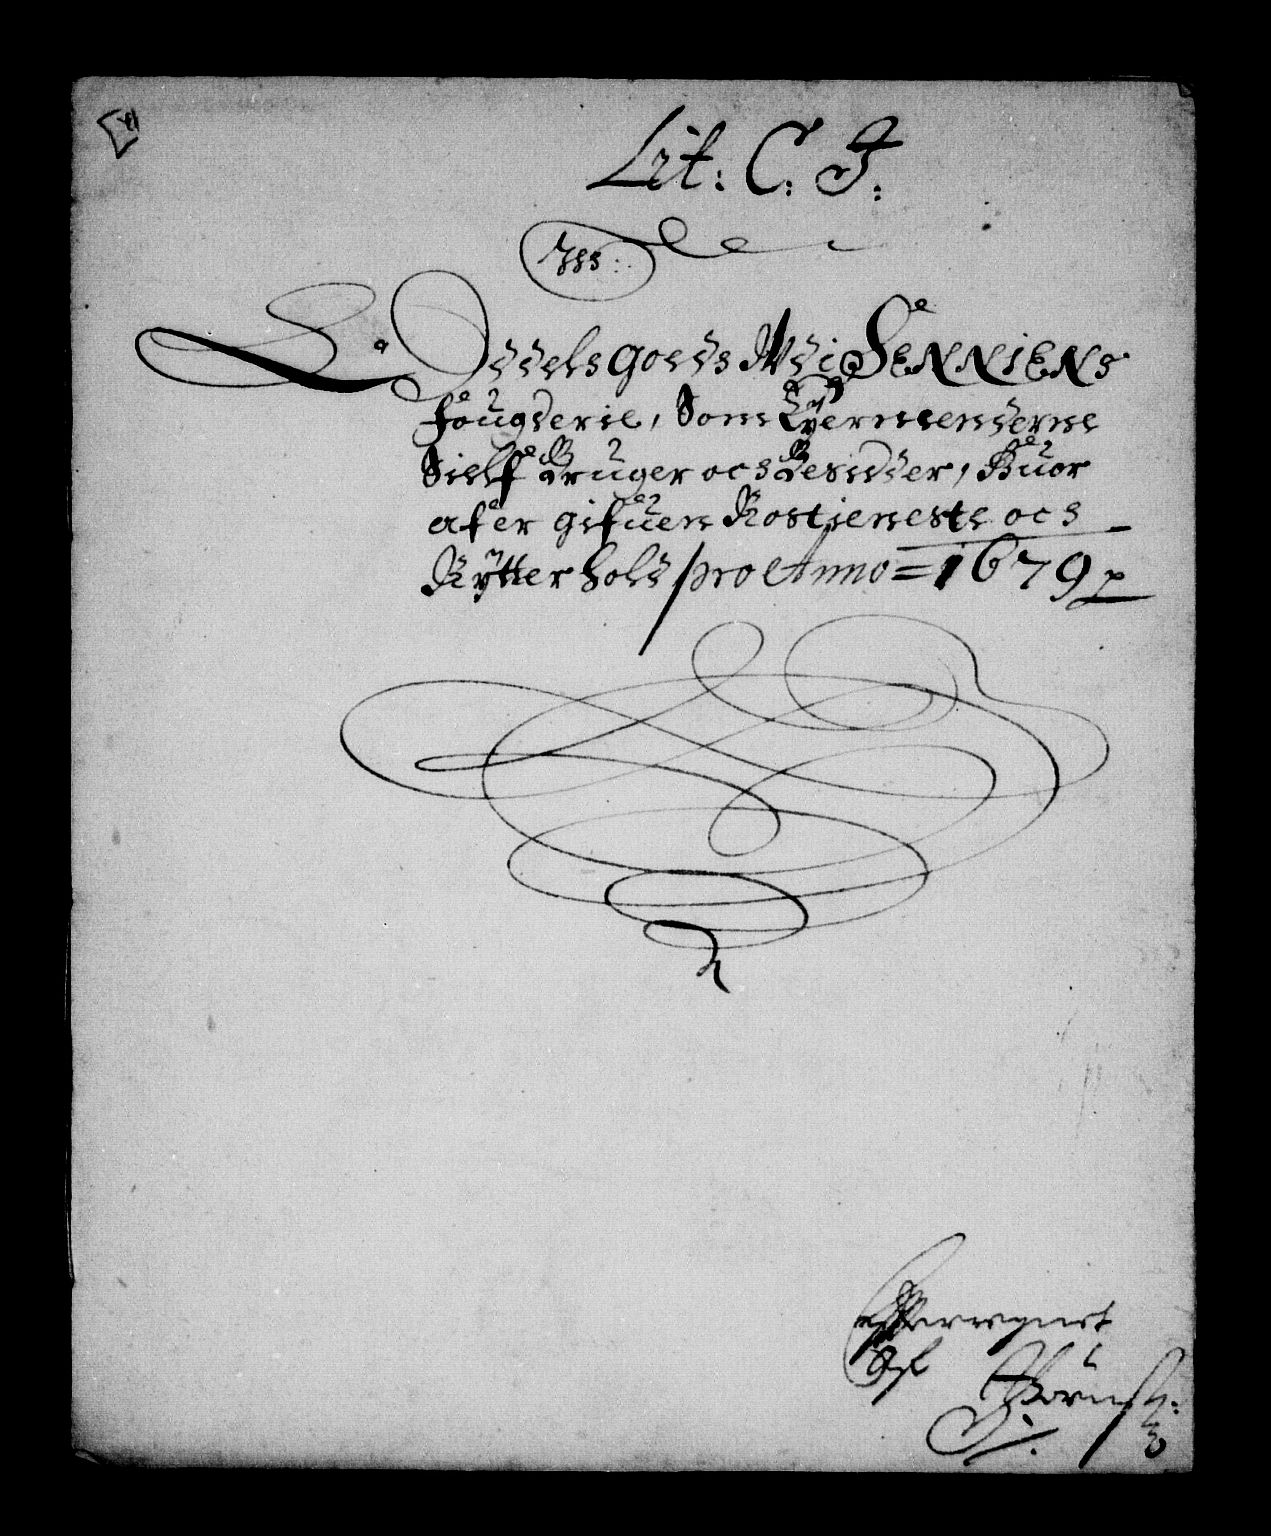 Lit: C. F:
Odels Godts Udi Senniens
fougderie, Som Eyermendene
Sielf Bruger och Besidder, Huor
afer gifuen Rostieneste och
Rytterhold pro Anno = 1679
Af